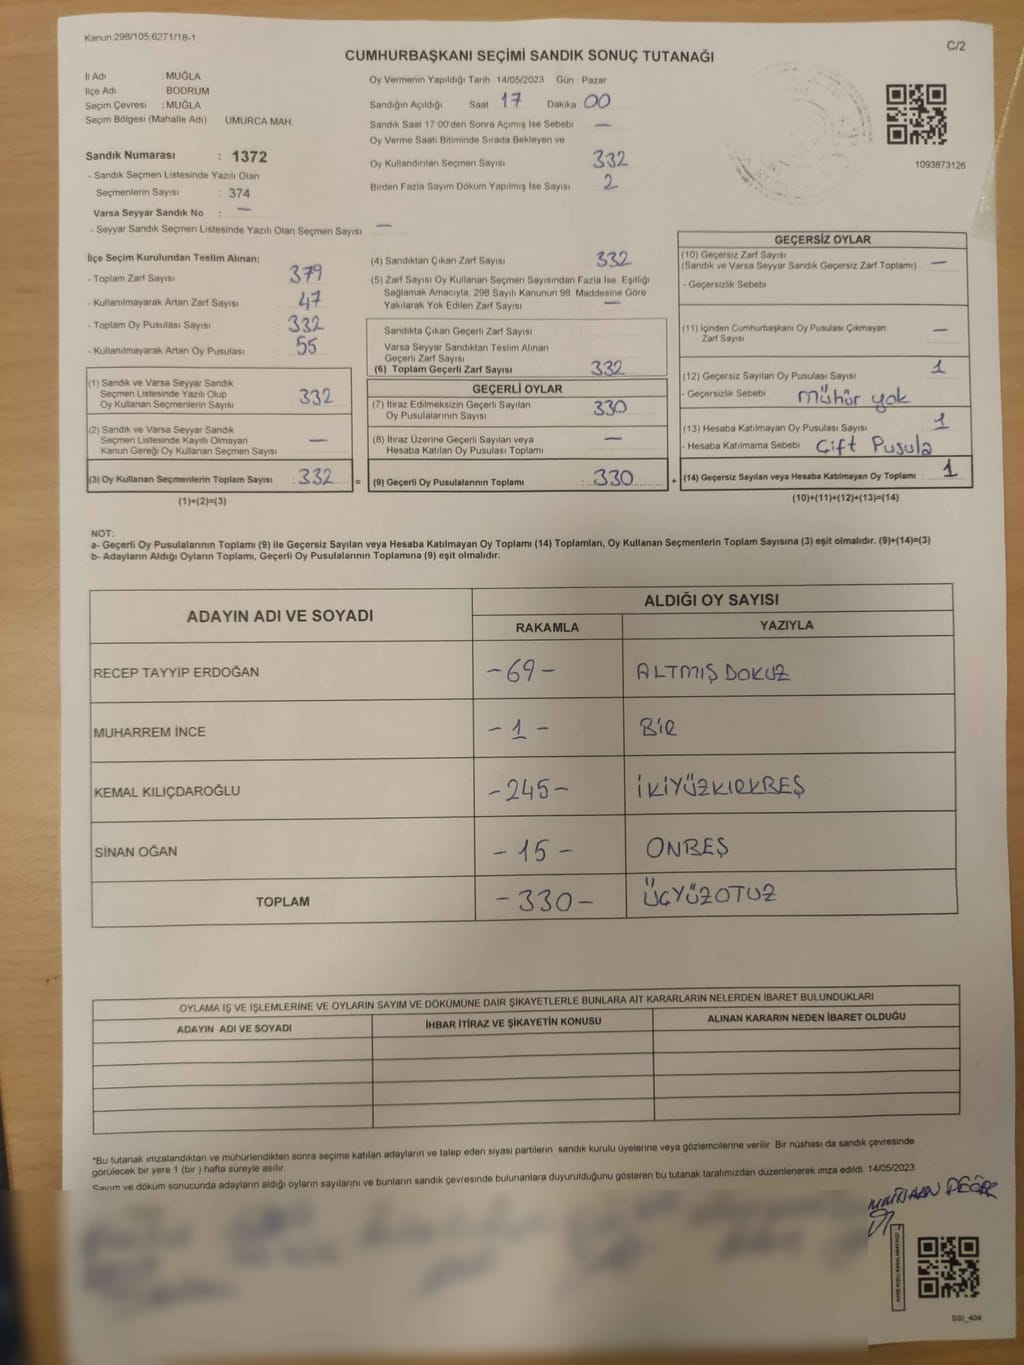 Kanun 298/105.6271/18-1
C/2
CUMHURBAŞKANI SEÇİMİ SANDIK SONUÇ TUTANAĞI
İl Adı : MUĞLA
İlçe Adı BODRUM
Seçim Çevresi : MUĞLA
Seçim Bölgesi (Mahalle Adı) : UMURCA MAH.
Sandık Numarası : 1372
- Sandık Seçmen Listesinde Yazılı Olan
Seçmenlerin Sayısı : 374
Varsa Seyyar Sandık No : —
- Seyyar Sandık Seçmen Listesinde Yazılı Olan Seçmen Sayısı: —
Oy Vermenin Yapıldığı Tarih :14/05/2023 Gün : Pazar
Sandığın Açıldığı Saat 17 Dakika 00
Sandık Saat 17:00'den Sonra Açımış İse Sebebi —
Oy Verme Saati Bitiminde Sırada Bekleyen ve
Oy Kullandırılan Seçmen Sayısı 332
Birden Fazla Sayım Döküm Yapılmış İse Sayısı 2
1093873126
İlçe Seçim Kurulundan Teslim Alınan;
- Toplam Zarf Sayısı 379
- Kullanılmayarak Artan Zarf Sayısı 47
- Toplam Oy Pusulası Sayısı 332
- Kullanılmayarak Artan Oy Pusulası 55
(1) Sandık ve Varsa Seyyar Sandık
Seçmen Listesinde Yazılı Olup
Oy Kullanan Seçmenlerin Sayısı 332
(2) Sandık ve Varsa Seyyar Sandık
Seçmen Listesinde Kayıtlı Olmayan
Kanun Gereği Oy Kullanan Seçmen Sayısı —
(3) Oy Kullanan Seçmenlerin Toplam Sayısı : 332 =
(1)+(2)=(3)
(4) Sandıktan Çıkan Zarf Sayısı 332
(5) Zarf Sayısı Oy Kullanan Seçmen Sayısından Fazla İse, Eşitliği
Sağlamak Amacıyla, 298 Sayılı Kanunun 98. Maddesine Göre
Yakılarak Yok Edilen Zarf Sayısı —
Sandıkta Çıkan Geçerli Zarf Sayısı
Varsa Seyyar Sandıktan Teslim Alınan
Geçerli Zarf Sayısı
(6) Toplam Geçerli Zarf Sayısı 332
GEÇERLİ OYLAR
(7) İtiraz Edilmeksizin Geçerli Sayılan
Oy Pusulalarının Sayısı 330
(8) İtiraz Üzerine Geçerli Sayılan veya
Hesaba Katılan Oy Pusulası Toplamı —
(9) Geçerli Oy Pusulalarının Toplamı : 330 +
GEÇERSİZ OYLAR
(10) Geçersiz Zarf Sayısı
(Sandık ve Varsa Seyyar Sandık Geçersiz Zarf Toplamı) —
- Geçersizlik Sebebi
(11) İçinden Cumhurbaşkanı Oy Pusulası Çıkmayan
Zarf Sayısı —
(12) Geçersiz Sayılan Oy Pusulası Sayısı 1
- Geçersizlik Sebebi Mühür yok
(13) Hesaba Katılmayan Oy Pusulası Sayısı 1
- Hesaba Katılmama Sebebi Çift Pusula
(14) Geçersiz Sayılan veya Hesaba Katılmayan Oy Toplamı 1
(10)+(11)+(12)+(13)=(14)
NOT:
a- Geçerli Oy Pusulalarının Toplamı (9) ile Geçersiz Sayılan veya Hesaba Katılmayan Oy Toplamı (14) Toplamları, Oy Kullanan Seçmenlerin Toplam Sayısına (3) eşit olmalıdır. (9)+(14)=(3)
b- Adayların Aldığı Oyların Toplamı, Geçerli Oy Pusulalarının Toplamına (9) eşit olmalıdır.
ADAYIN ADI VE SOYADI ALDIĞI OY SAYISI
RAKAMLA YAZIYLA
RECEP TAYYİP ERDOĞAN -69- ALTMIŞ DOKUZ
MUHARREM İNCE -1- BİR
KEMAL KILIÇDAROĞLU -245- İKİYÜZKIRKBEŞ
SİNAN OĞAN -15- ONBEŞ
TOPLAM -330- ÜÇYÜZOTUZ
OYLAMA İŞ VE İŞLEMLERİNE VE OYLARIN SAYIM VE DÖKÜMÜNE DAİR ŞİKAYETLERLE BUNLARA AİT KARARLARIN NELERDEN İBARET BULUNDUKLARI
ADAYIN ADI VE SOYADI İHBAR İTİRAZ VE ŞİKAYETİN KONUSU ALINAN KARARIN NEDEN İBARET OLDUĞU
*Bu tutanak imzalandıktan ve mühürlendikten sonra seçime katılan adayların ve talep eden siyasi partilerin sandık kurulu üyelerine veya gözlemcilerine verilir. Bir nüshası da sandık çevresinde
görülecek bir yere 1 (bir ) hafta süreyle asılır.
Sayım ve döküm sonucunda adayların aldığı oyların sayılarını ve bunların sandık çevresinde bulunanlara duyurulduğunu gösteren bu tutanak tarafımızdan düzenlenerek imza edildi. 14/05/2023
SSI_404